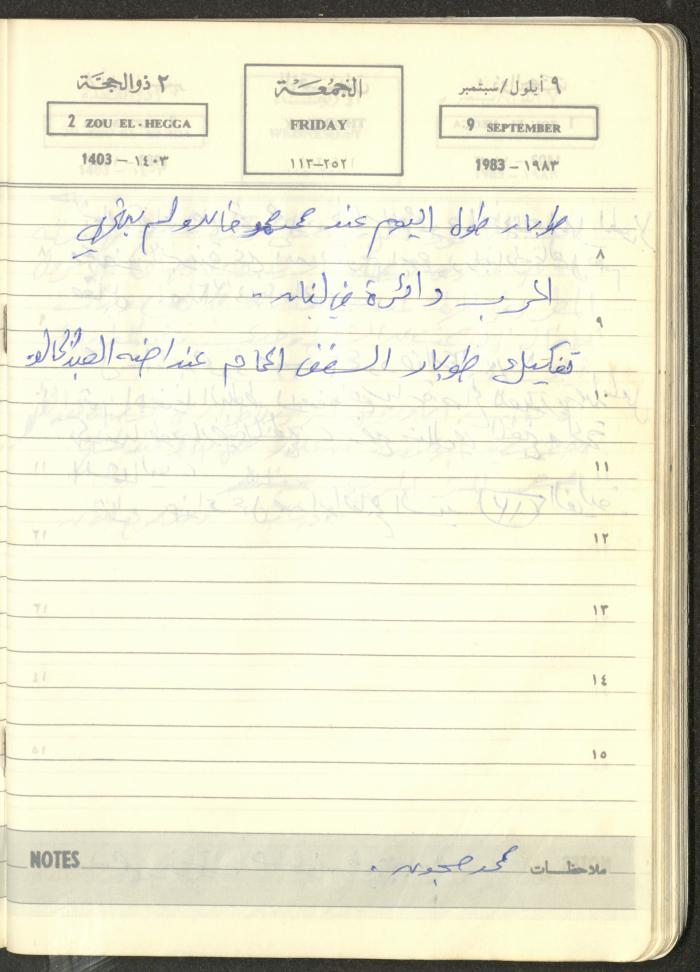 ٩ أيلول/سبتمبر
9 SEPTEMBER
1983 – ١٩٨٣
الجمعة
FRIDAY
٢٥٢–١١٣
٢ ذو الحجة
2 ZOU EL-HEGGA
1403 – ١٤٠٣
طوبار طول اليوم عند خالد ولم ينتهي
٨
الحرب دائرة في لبنان ..
٩
تفكيك طوبار السقف عند
١٠
١١
١٢
١٣
١٤
١٥
ملاحظات محمد
NOTES